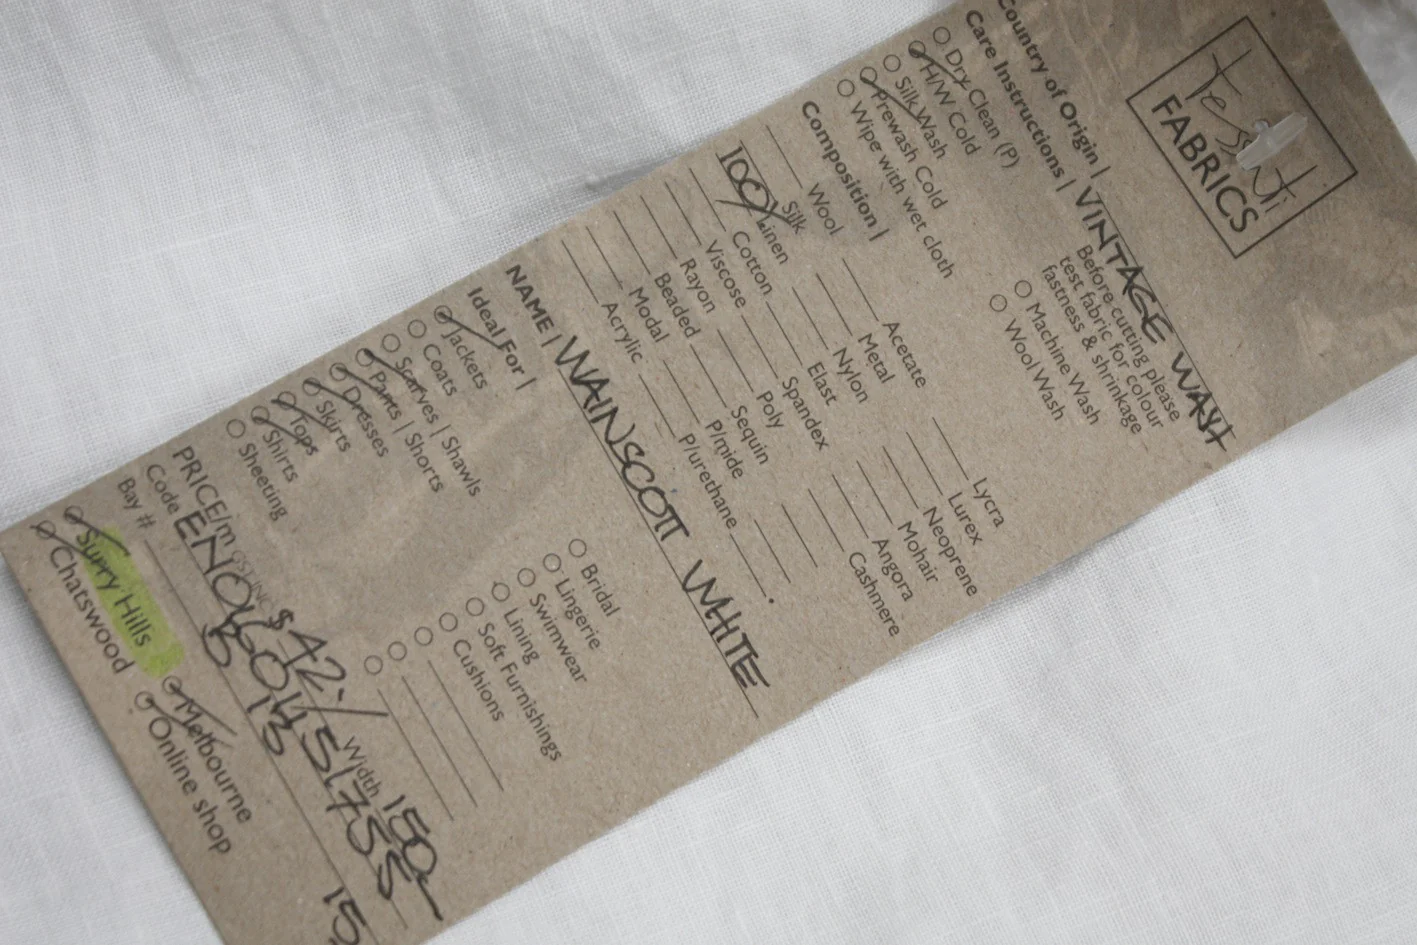 Tessuti
FABRICS
Country of Origin | VINTAGE WASH
Care Instructions | Before cutting please
test fabric for colour
fastness & shrinkage
Dry Clean (P)
H/W Cold
Silk Wash
Prewash Cold
Wipe with wet cloth
Machine Wash
Wool Wash
Composition |
Wool
Silk
100% Linen
Cotton
Viscose
Rayon
Beaded
Modal
Acrylic
Acetate
Metal
Nylon
Elast
Spandex
Poly
Sequin
P/mide
P/urethane
Lycra
Lurex
Neoprene
Mohair
Angora
Cashmere
NAME | WAINSCOTT WHITE
Ideal For |
Jackets
Coats
Scarves | Shawls
Pants | Shorts
Dresses
Skirts
Tops
Shirts
Sheeting
Bridal
Lingerie
Swimwear
Lining
Soft Furnishings
Cushions
PRICE/m GST INC $ 42.- Width 150
Code
Bay # 15
Surry Hills
Chatswood
Melbourne
Online shop